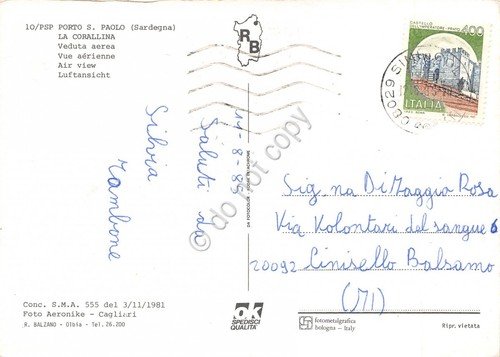 10/PSP PORTO S. PAOLO (Sardegna)
LA CORALLINA
Veduta aerea
Vue aérienne
Air view
Luftansicht
RB
CASTELLO
DELL'IMPERATORE - PRATO
400
ITALIA
00029
14-8-85
Saluti da
Silvia
Zambone
do not copy
DA FOTOCOLOR
Sig.na Di Maggio Rosa
Via Volontari del sangue 6
20092 Cinisello Balsamo
(MI)
Conc. S.M.A. 555 del 3/11/1981
Foto Aeronike - Cagliari
R. BALZANO - Olbia - Tel. 26.200
ok
SPEDISCI
QUALITÀ
fotometalgrafica
bologna - Italy
Ripr. vietata